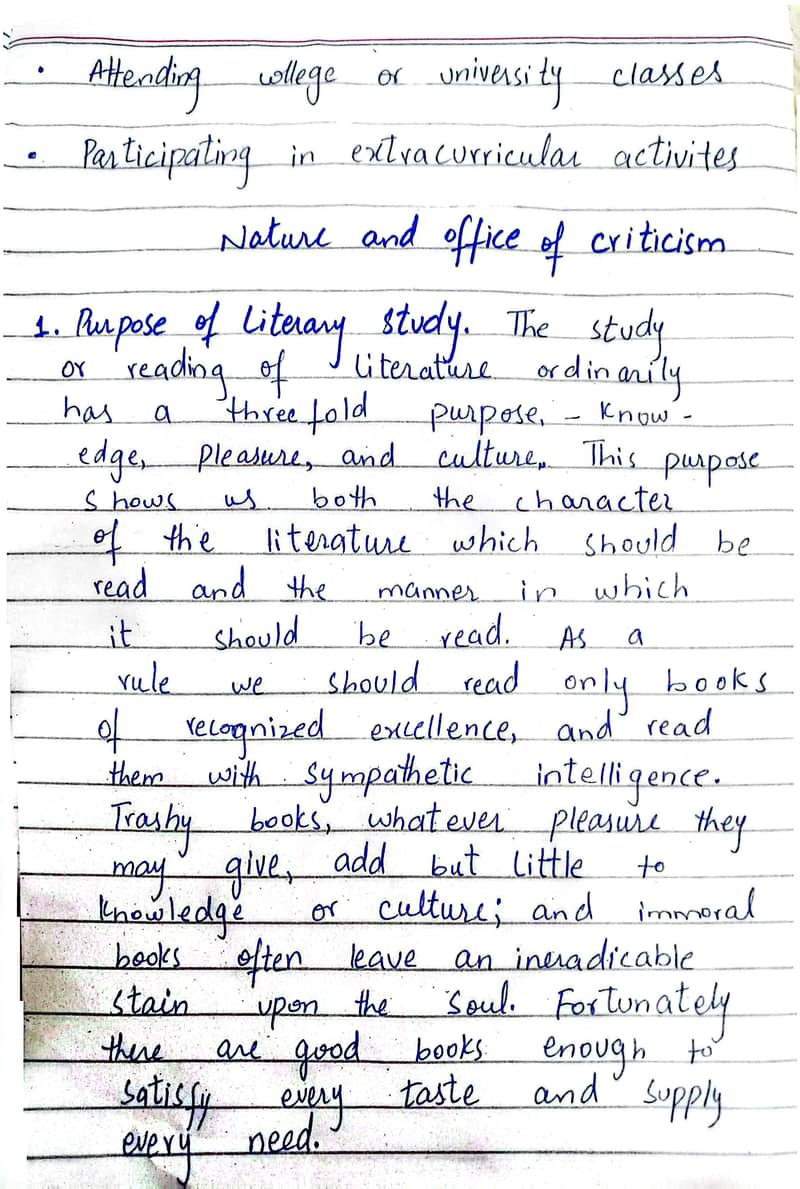 • Attending college or university classes
• Participating in extracurricular activites
Nature and office of criticism
1. Purpose of Literary study. The study
or reading of literature ordinarily
has a three fold purpose, - know -
edge, pleasure, and culture,. This purpose
shows us both the character
of the literature which should be
read and the manner in which
it should be read. As a
rule we should read only books
of recognized excellence, and read
them with sympathetic intelligence.
Trashy books, whatever pleasure they
may give, add but little to
knowledge or culture; and immoral
books often leave an ineradicable
stain upon the soul. Fortunately
there are good books enough to
satisfy every taste and supply
every need.